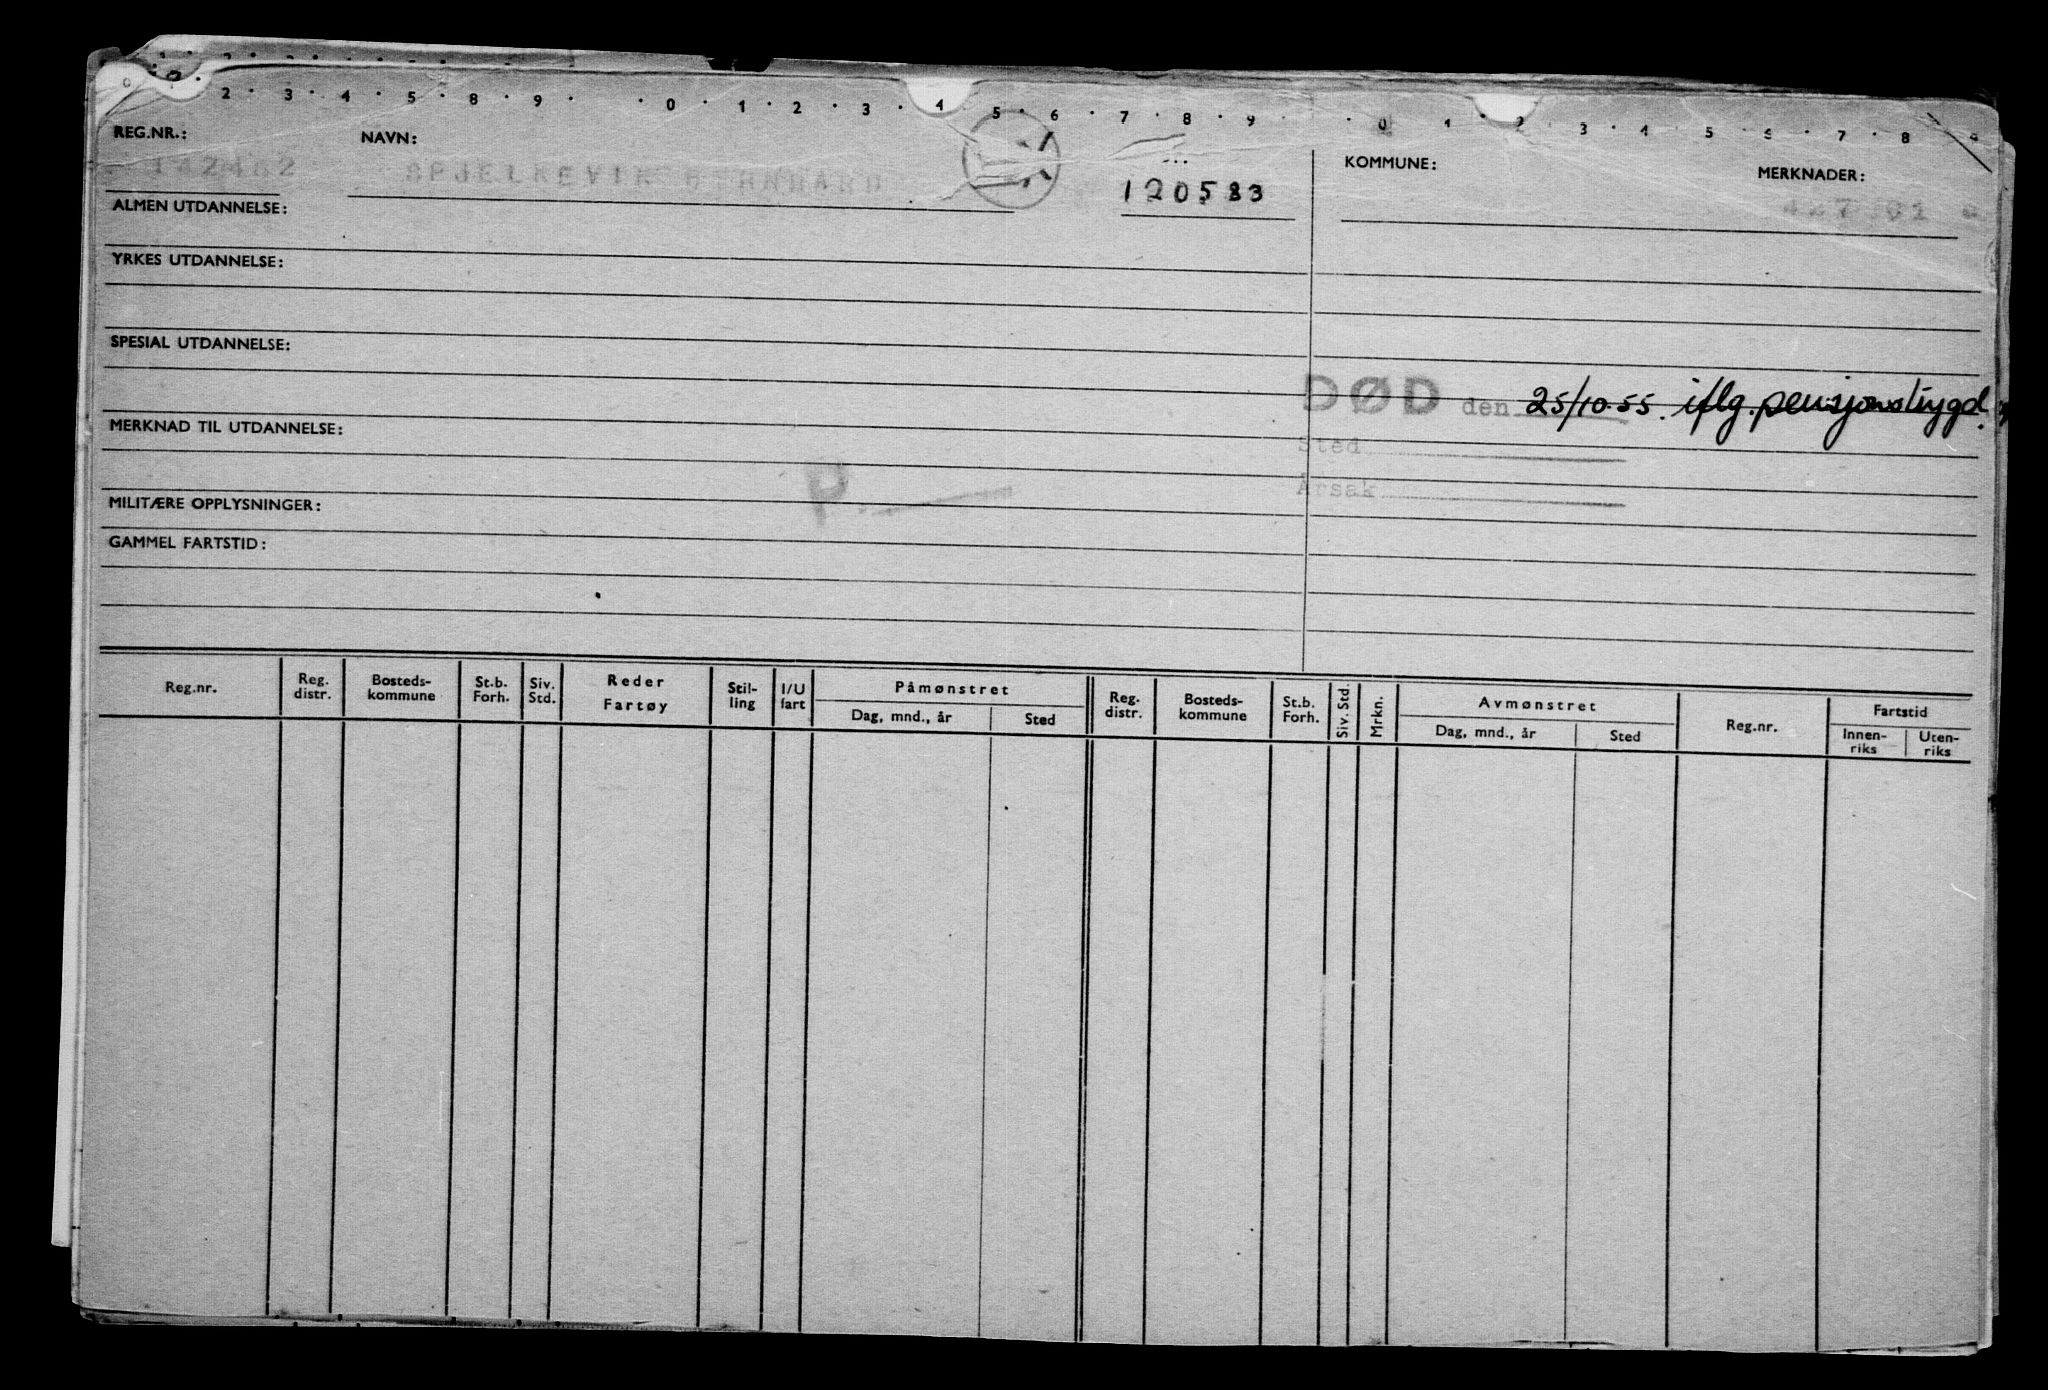 0 · 2 · 3 · 4 · 5 · 8 · 9 · · 0 · 1 · 2 · 3 · 4 · 5 · 6 · 7 · 8 · 9 · · 0 · 1 · 2 · 3 · 4 · 5 · 6 · 7 · 8 · 9
REG.NR.: NAVN: KOMMUNE: MERKNADER:
142462 SPJELKEVIK BERNHARD 120583
ALMEN UTDANNELSE:
YRKES UTDANNELSE:
SPESIAL UTDANNELSE:
DØD den 25/10.55. iflg. pensjonstrygd.
MERKNAD TIL UTDANNELSE:
Sted
P.
Årsak
MILITÆRE OPPLYSNINGER:
GAMMEL FARTSTID:
Reg.nr. Reg. distr. Bosteds-kommune St.b. Forh. Siv. Std. Reder Fartøy Stil-ling I/U fart Påmønstret Reg. distr. Bosteds-kommune St.b. Forh. Siv. Std. Mrkn. Avmønstret Reg.nr. Fartstid
Dag, mnd., år Sted Dag, mnd., år Sted Innen-riks Uten-riks